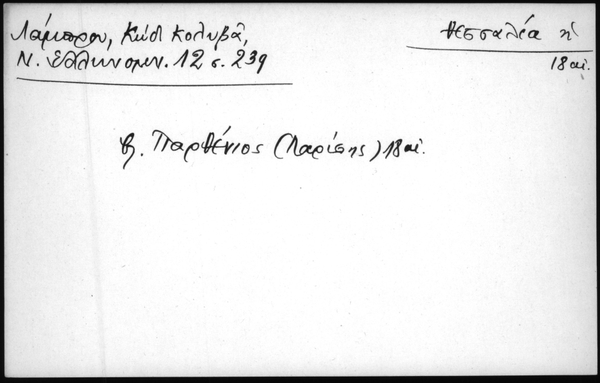 Λάμπρου, Κώδ Κολυβᾶ,
Ν. Ἑλληνομν. 12 σ. 239
Θεσσαλία ἡ
18 αἰ.
β. Παρθένιος (Λαρίσης) 18 αἰ.